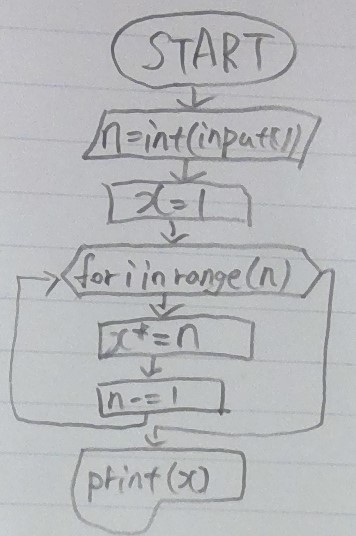 START
n=int(input())
x=1
for i in range(n)
x*=n
n-=1
print(x)